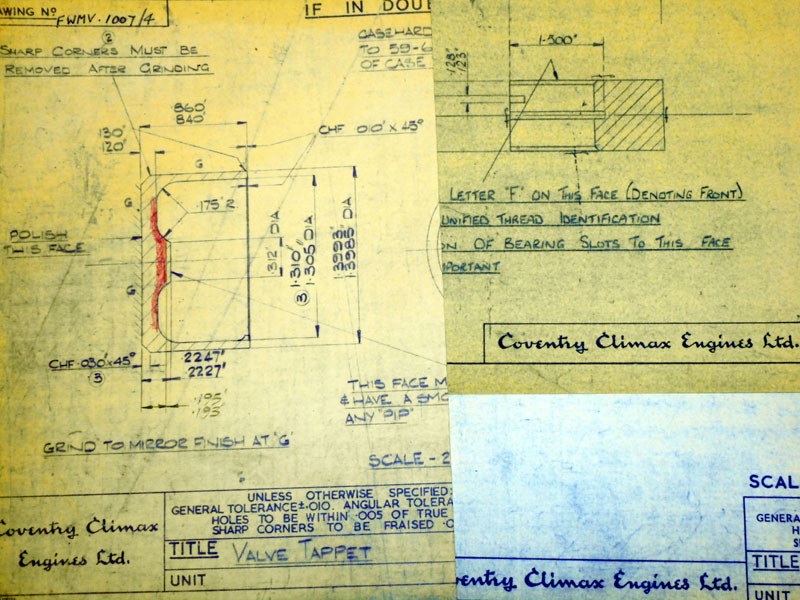 AWING Nº FWMV.1007/4
IF IN DOU
2
SHARP CORNERS MUST BE
REMOVED AFTER GRINDING
CASEHARD
TO 59-6
OF CASE
.860"
.840"
.130"
.120"
CHF .010" X 45°
G
.175" R
G
POLISH
THIS FACE
G
.312" DIA
3 1.310" DIA
1.305 DIA
1.3993" DIA
1.3985 DIA
CHF .030" X 45°
3
.2247"
.2227"
.195"
.193"
THIS FACE M
& HAVE A SMO
ANY "PIP"
GRIND TO MIRROR FINISH AT 'G'
SCALE - 2
UNLESS OTHERWISE SPECIFIED:
GENERAL TOLERANCE ±.010. ANGULAR TOLERA
HOLES TO BE WITHIN .005 OF TRUE
SHARP CORNERS TO BE FRAISED .0
Coventry Climax
Engines Ltd.
TITLE VALVE TAPPET
UNIT
1.500"
.128"
.123"
LETTER "F" ON THIS FACE (DENOTING FRONT)
UNIFIED THREAD IDENTIFICATION
ON OF BEARING SLOTS TO THIS FACE
MPORTANT
Coventry Climax Engines Ltd.
SCAL
GENERA
H
S
TITLE
ventry Climax Engines Ltd.
UNIT